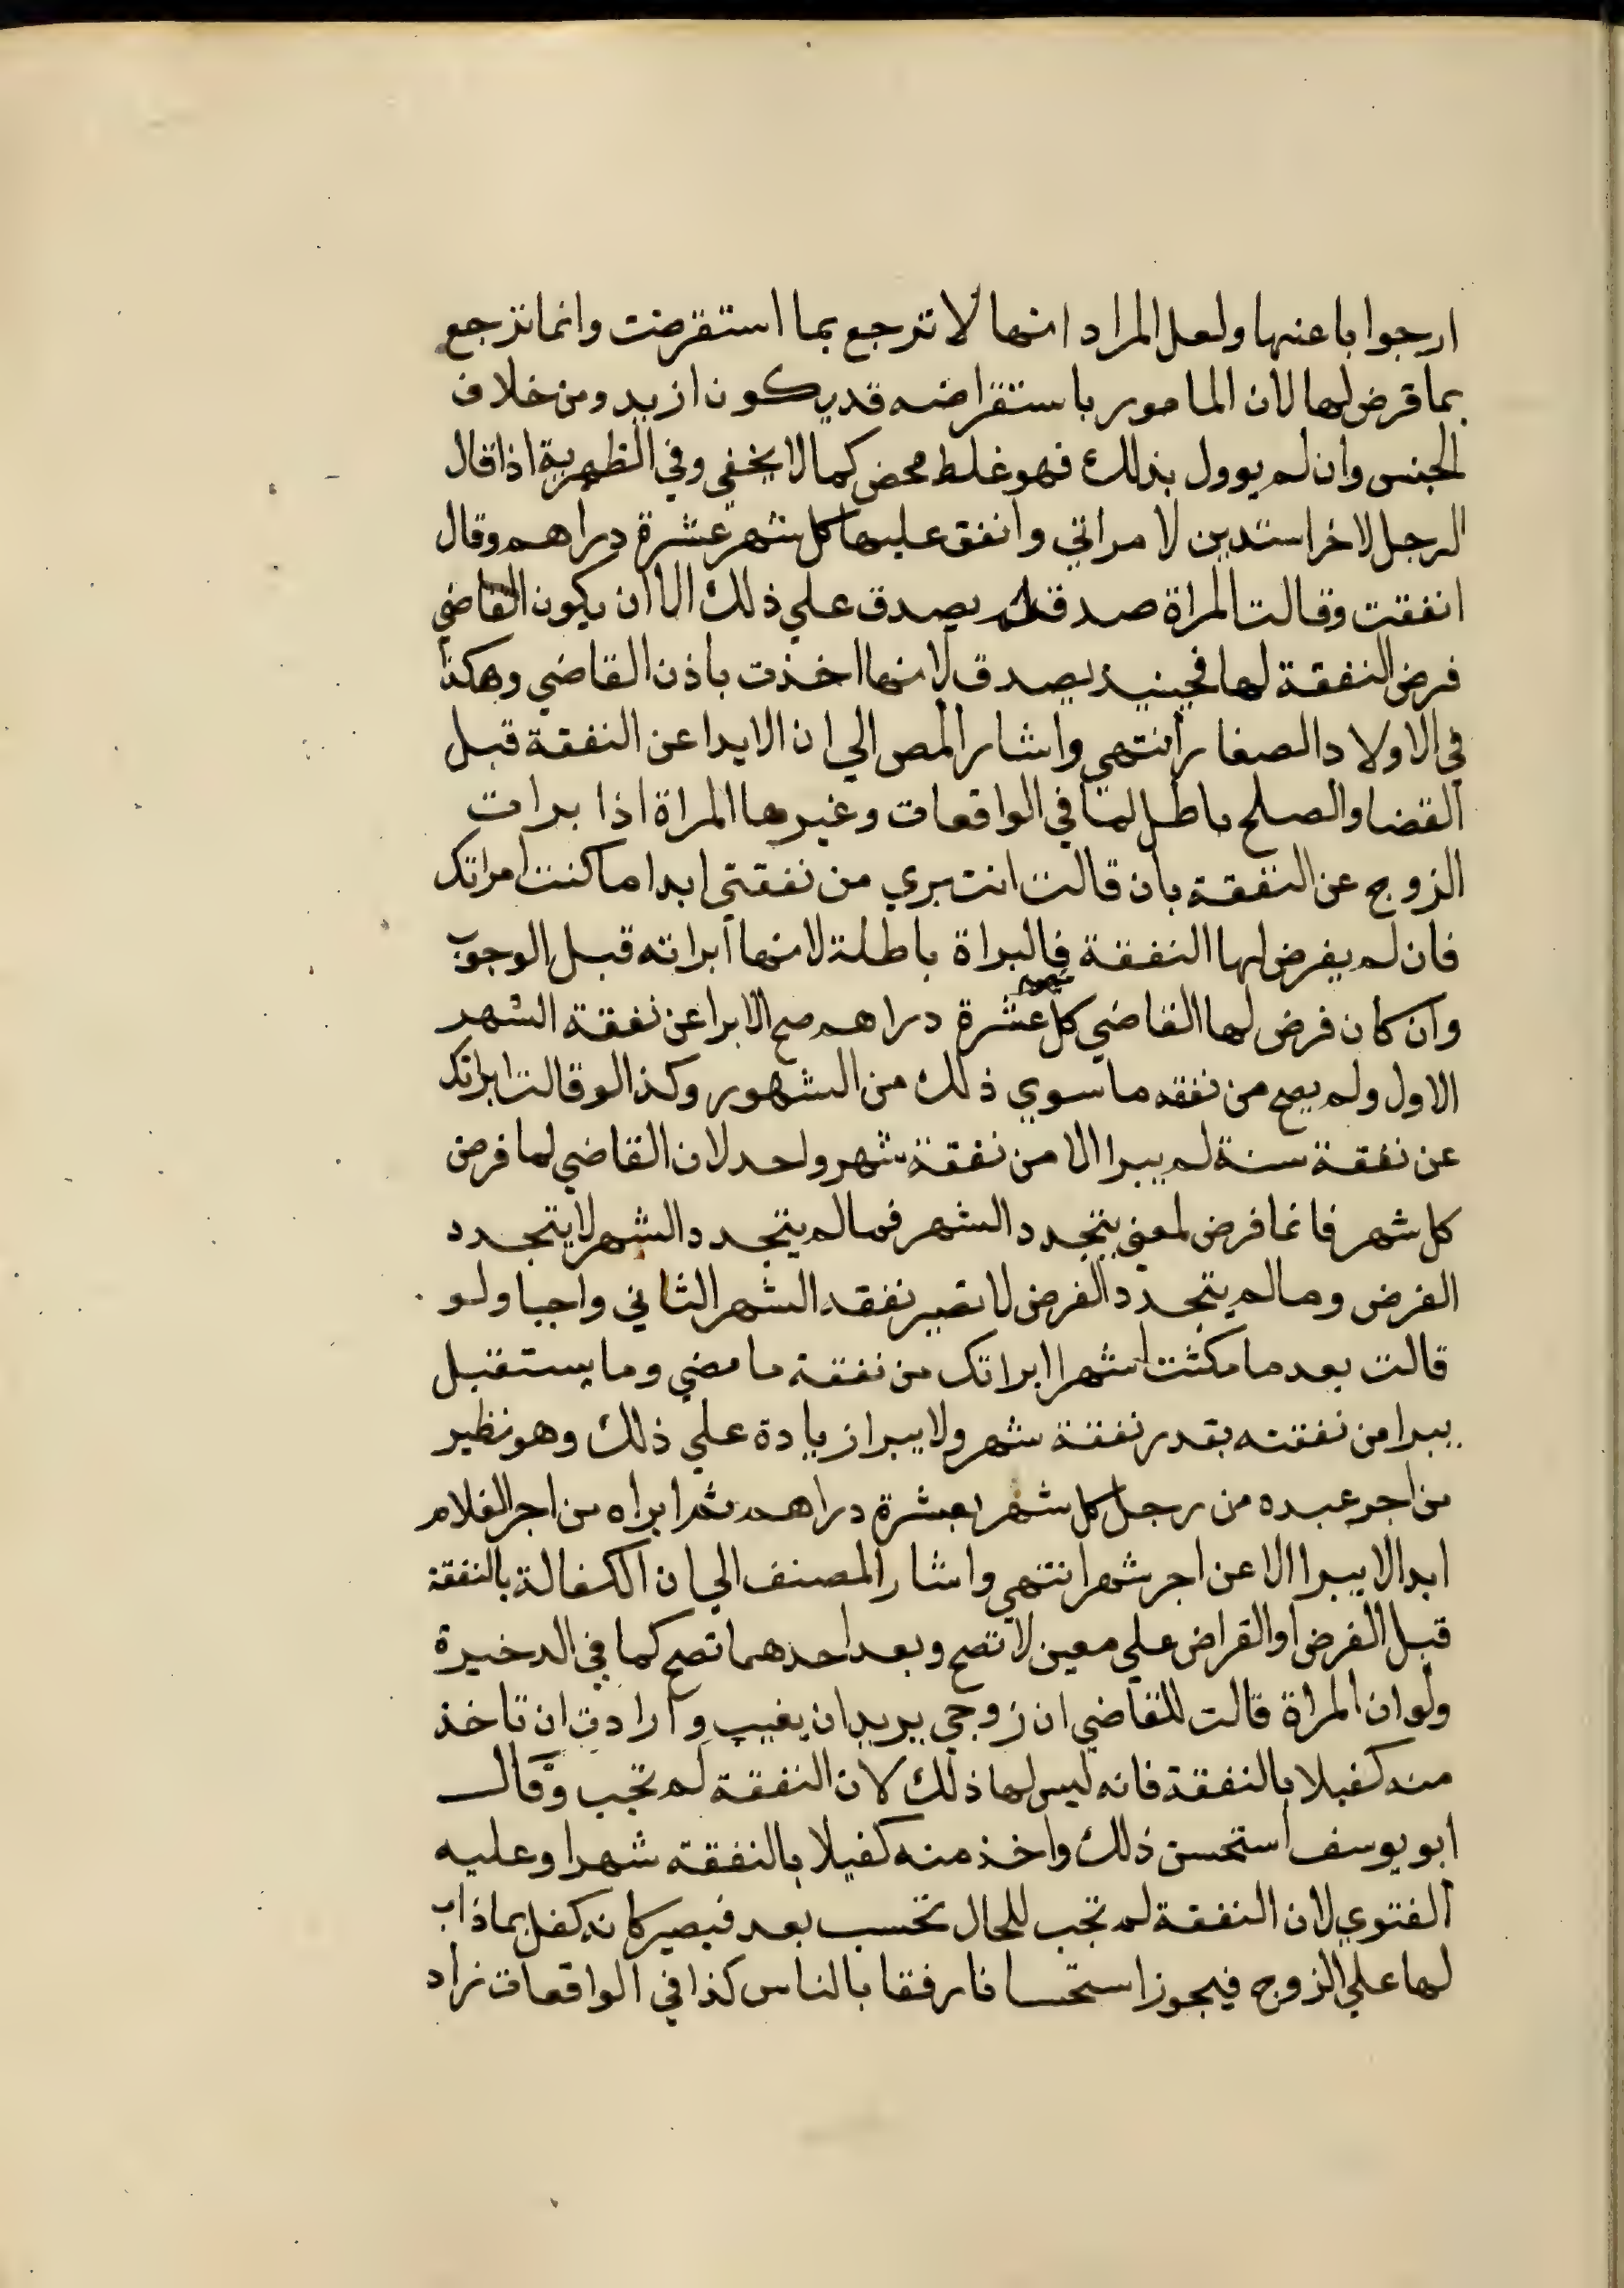 ارجوا باعنها ولعل المراد انها لا ترجع بما استقرضت وانما ترجع
بما قرض لها لان المامور باستقراضه قد يكون ازيد ومن خلاف
الجنس وان لم يوول بذلك فهو غلط محض كما لا يخفي وفي الظهرية اذا قال
الرجل لاخر استدين لامراتي وانفق عليها كل شهر عشرة دراهم وقال
انفقت وقالت المراة صدق لم يصدق علي ذلك الا ان يكون القاضي
فرض النفقة لها فحينيد يصدق لانها اخذت باذن القاضي وهكذا
في الاولاد الصغار انتهي واشار المص الي ان الابرا عن النفقة قبل
القضا والصلح باطل لما في الواقعات وغيرها المراة اذا برات
الزوج عن النفقة بان قالت انت بري من نفقتي ابدا ما كنت امراتك
فان لم يفرض لها النفقة فالبراة باطلة لانها ابراته قبل الوجوب
وان كان فرض لها القاضي كل شهر عشرة دراهم صح الابرا عن نفقة الشهر
الاول ولم يصح من نفقه ما سوي ذلك من الشهور وكذا لو قالت ابراتك
عن نفقة سنة لم يبرا الا من نفقة شهر واحد لان القاضي لما فرض
كل شهر فانما فرض لمعني يتجدد الشهر فما لم يتجدد الشهر لا يتجدد
الفرض وما لم يتجدد الفرض لا تصير نفقه الشهر الثاني واجبا ولو
قالت بعد ما مكثت اشهرا ابراتك من نفقة ما مضي وما يستقبل
يبرا من نفقته بقدر نفقة شهر ولا يبرا زيادة علي ذلك وهو نظير
من اجر عبده من رجل كل شهر بعشرة دراهم ثم ابراه من اجر الغلام
ابدا لا يبرا الا عن اجر شهر انتهي واشار المصنف الي ان الكفالة بالنفقة
قبل الفرض او القراض علي معين لا تصح وبعد احدهما تصح كما في الدخيرة
ولو ان المراة قالت للقاضي ان زوجي يريد ان يغيب وارادت ان تاخذ
منه كفيلا بالنفقة فانه ليس لها ذلك لان النفقة لم تجب وقال
ابو يوسف استحسن ذلك واخذ منه كفيلا بالنفقة شهرا وعليه
الفتوي لان النفقة لم تجب للحال تحسب بعد فيصير كانه كفل بما ذاب
لها علي الزوج فيجوز استحسانا رفقا بالناس كذا في الواقعات زاد